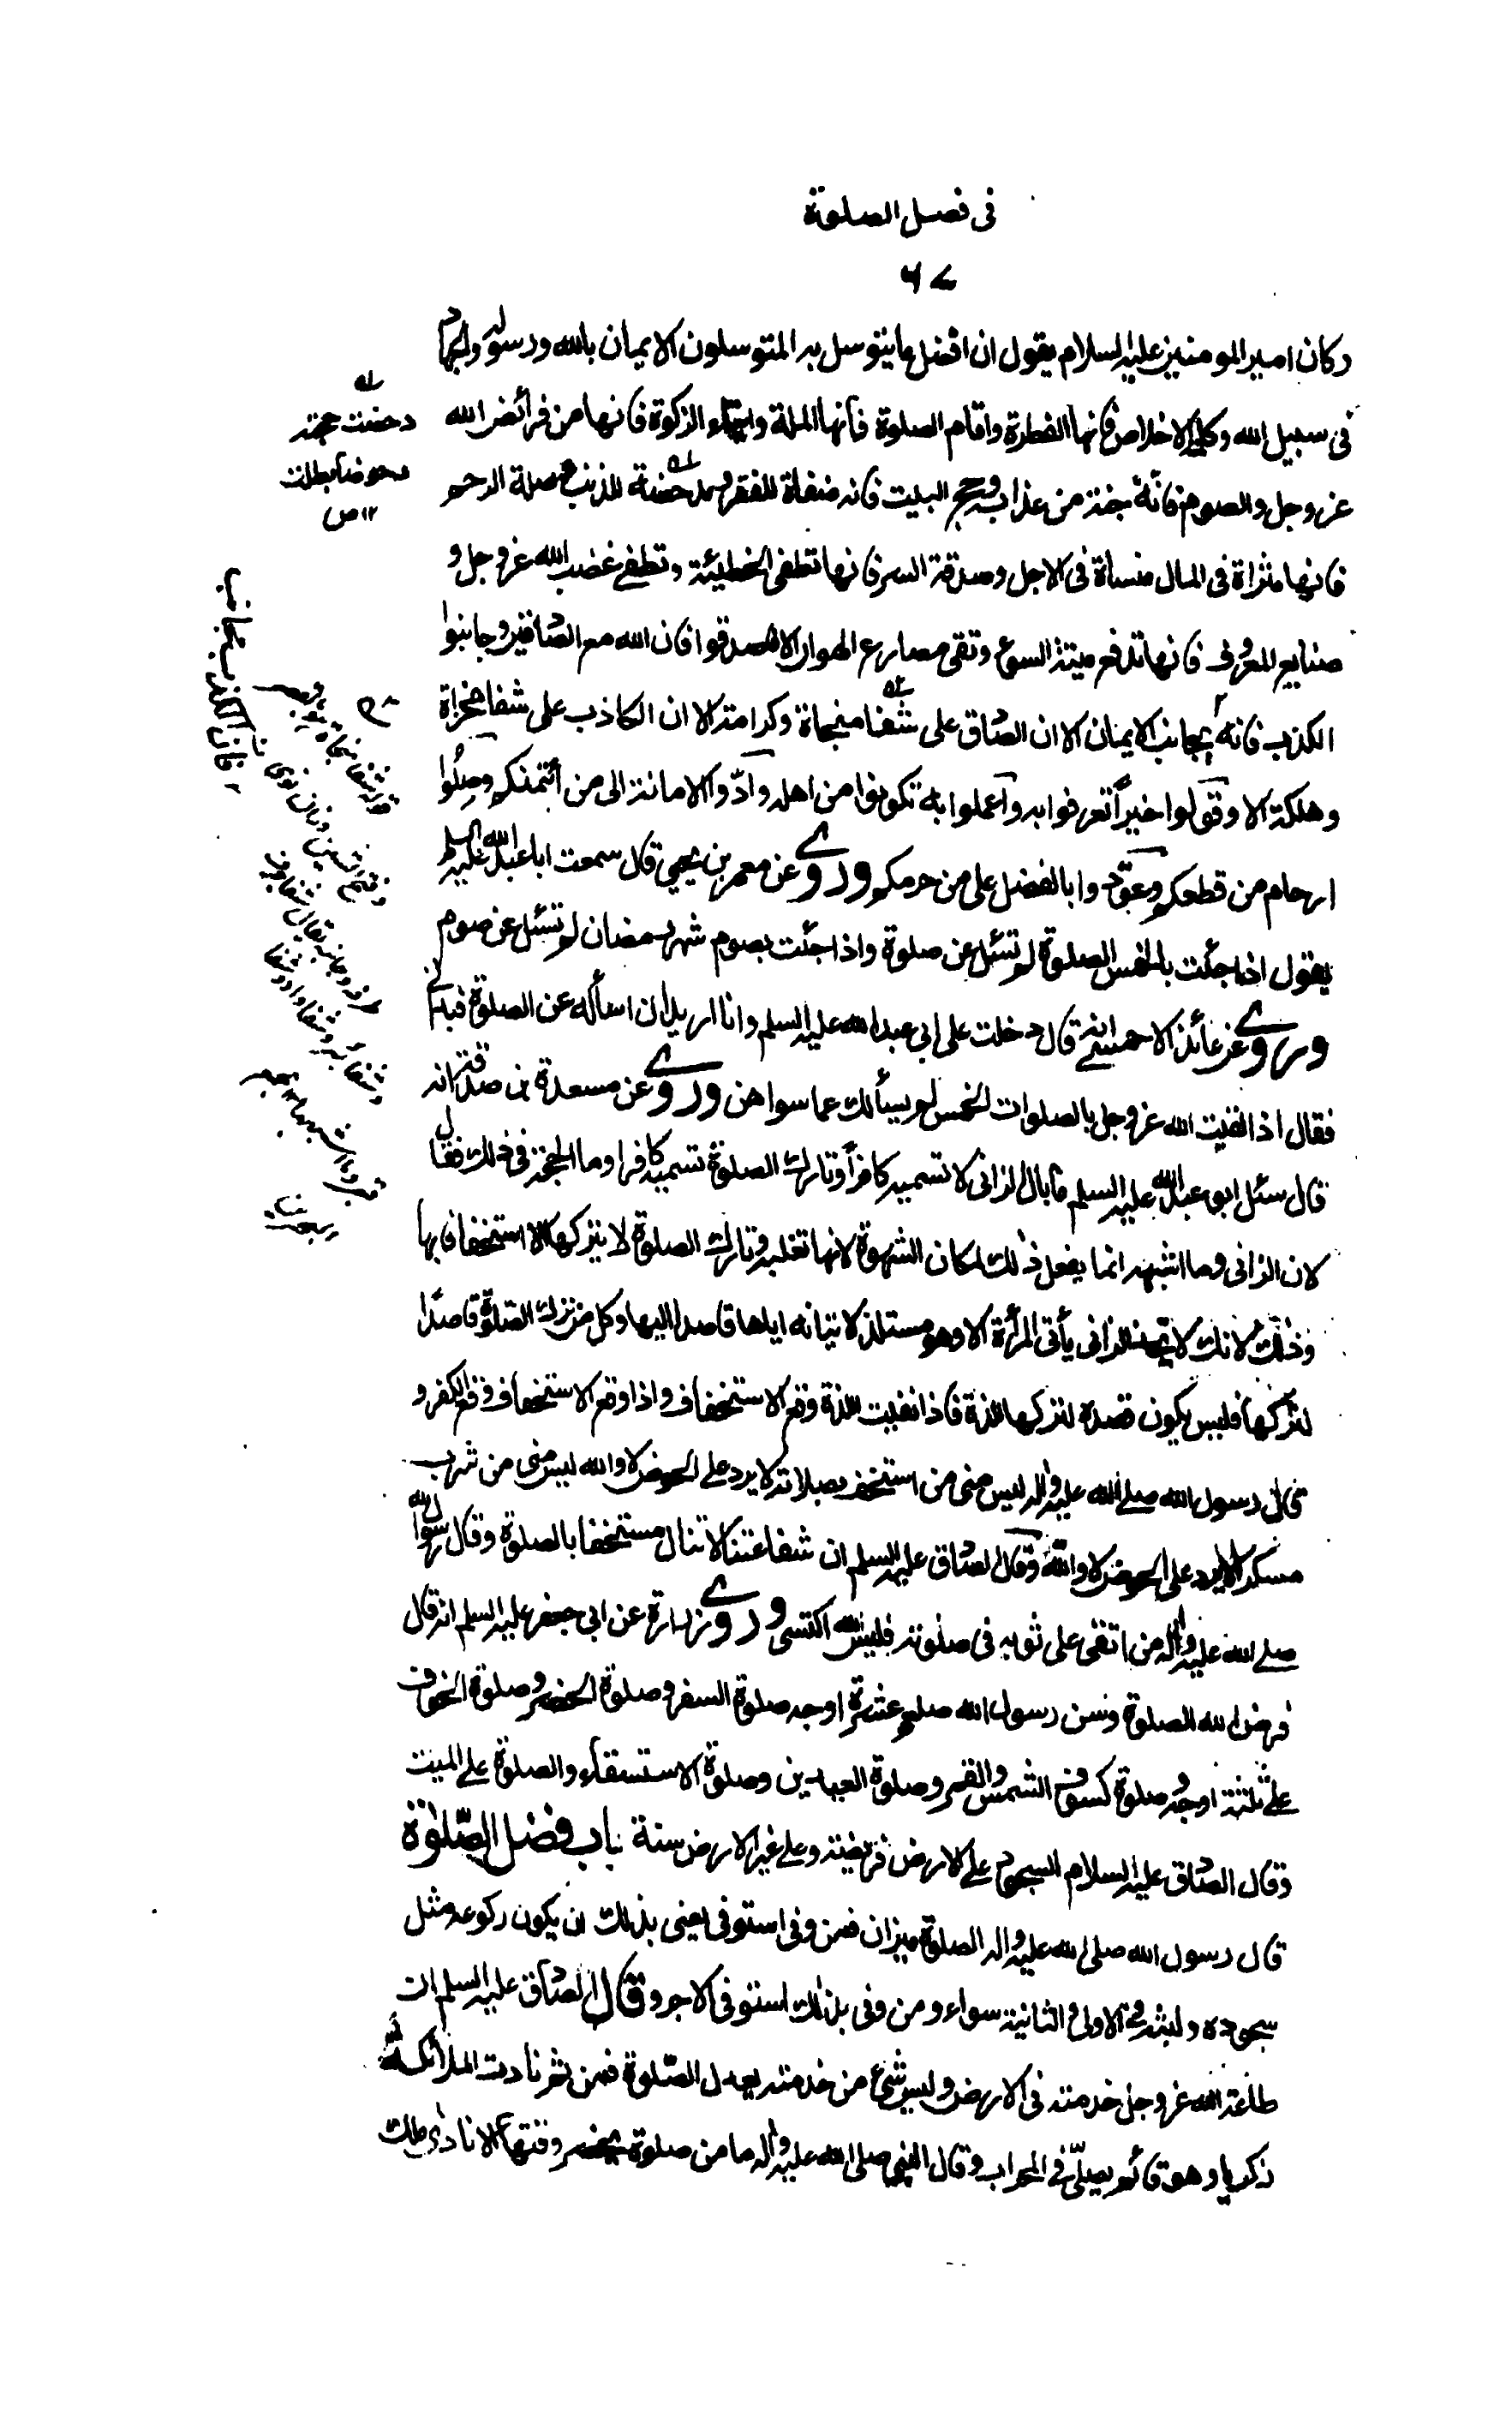 فى فضل الصلوة
٦٧
وكان امير المومنين عليه السلام يقول ان افضل ما يتوسل به المتوسلون الايمان بالله ورسوله والجهاد
فى سبيل الله وكلمة الاخلاص فانها الفطرة واقام الصلوة فانها الملة وايتاء الزكوة فانها من فرائض الله
عز وجل والصوم فانه جنة من عذابه وحج البيت فانه منفاة للفقر ومدحضة للذنب وصلة الرحم
فانها مثراة فى المال منساة فى الاجل وصدقة السر فانها تطفى الخطيئة وتطفئ غضب الله عز وجل و
صنايع المعروف فانها تدفع ميتة السوء وتقى مصارع الهوان الا فاصدقوا فان الله مع الصادقين وجانبوا
الكذب فانه يجانب الايمان الا ان الصادق على شفا منجاة وكرامة الا ان الكاذب على شفا مخزاة
وهلكة الا وقولوا خيراً تعرفوا به واعملوا به تكونوا من اهله وادّوا الامانة الى من ائتمنكم وصِلُوا
ارحام من قطعكم وعودوا بالفضل على من حرمكم وروى عن معمر بن يحيى قال سمعت ابا عبد الله عليه السلم
يقول اذا جئت بالخمس الصلوة لم تسئل عن صلوة واذا جئت بصوم شهر رمضان لم تسئل عن صوم
وروى عن عائذ الاحمسى انه قال دخلت على ابى عبد الله عليه السلم وانا اريد ان اسأله عن الصلوة فبدأنى
فقال اذا لقيت الله عز وجل بالصلوات الخمس لم يسألك عما سواهن وروى عن مسعدة بن صدقة انه
قال سئل ابو عبد الله عليه السلم ما بال الزانى لا تسميه كافراً وتارك الصلوة تسميه كافرا وما الحجة فى ذلك فقال
لان الزانى وما اشبهه انما يفعل ذلك لمكان الشهوة لانها تغلبه وتارك الصلوة لا يتركها الا استخفافا بها
وذلك لانك لا تجد الزانى يأتى المرأة الا وهو مستلذ لاتيانه اياها قاصدا اليها وكل من ترك الصلوة قاصدًا
لتركها فليس يكون قصده لتركها اللذة فاذا نفيت اللذة وقع الاستخفاف واذا وقع الاستخفاف وقع الكفر و
قال رسول الله صلى الله عليه واله ليس منى من استخف بصلاته لا يرد على الحوض لا والله ليس منى من شرب
مسكرا لا يرد على الحوض لا والله وقال الصادق عليه السلم ان شفاعتنا لا تنال مستخفا بالصلوة وقال رسول الله
صلى الله عليه واله من اتقى على ثوبه فى صلوته فليس لله اكتسى وروى زرارة عن ابى جعفر عليه السلم انه قال
فرض الله الصلوة وسن رسول الله صلعم عشرة اوجه صلوة السفر وصلوة الحضر وصلوة الخوف
على ثلثة اوجه وصلوة كسوف الشمس والقمر وصلوة العيدين وصلوة الاستسقاء والصلوة على الميت
وقال الصادق عليه السلام السجود على الارض فريضة وعلى غير الارض سنة باب فضل الصّلوة
قال رسول الله صلى الله عليه واله الصلوة ميزان فمن وفى استوفى يعنى بذلك ان يكون ركوعه مثل
سجوده ولبثه فى الاولى والثانية سواء ومن وفى بذلك استوفى الاجر وقال الصادق عليه السلم ان
طاعة الله عز وجل خدمته فى الارض وليس شئ من خدمته يعدل الصّلوة فمن ثم نادت الملائكة
زكريا وهو قائم يصلّى فى المحراب وقال النبى صلى الله عليه واله ما من صلوة يحضر وقتها الا نادى ملك
دحضت حجته
دحوضا بطلت
١٢ ص